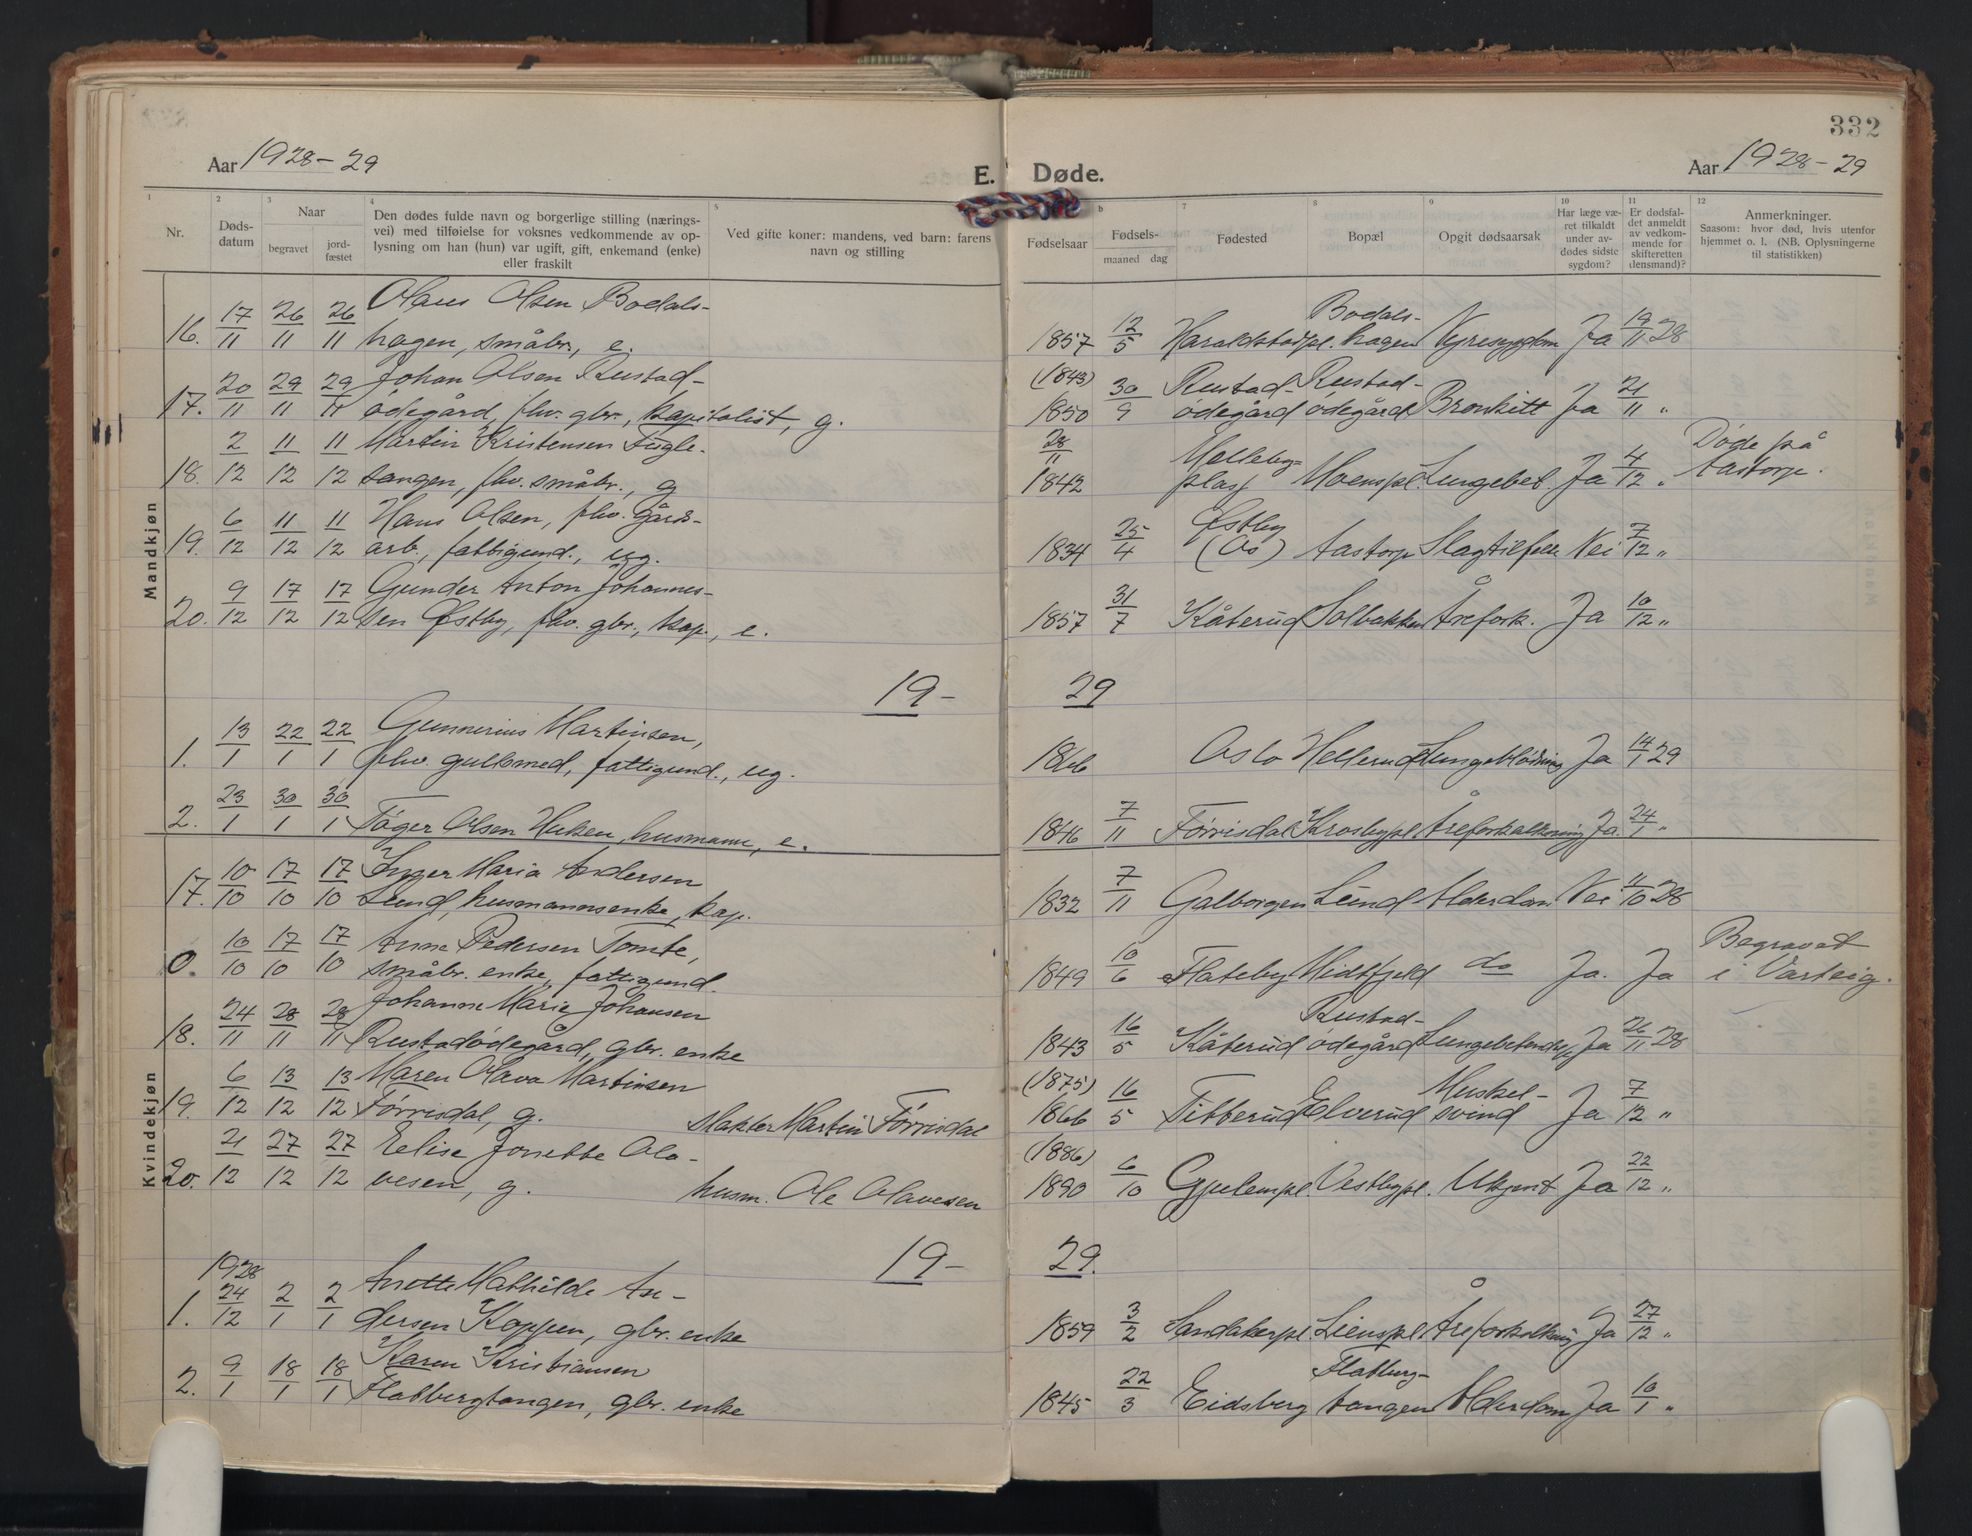 332
Aar 1928-29 E. Døde. Aar 1928-29
1 2 3 4 5 6 7 8 9 10 11 12
Nr. Døds-datum Naar begravet jord-fæstet
Den dødes fulde navn og borgerlige stilling (nærings-
vei) med tilføielse for voksnes vedkommende av op-
lysning om han (hun) var ugift, gift, enkemand (enke)
eller fraskilt
Ved gifte koner: mandens, ved barn: farens
navn og stilling
Fødselsaar Fødsels- maaned dag Fødested Bopæl Opgit dødsaarsak
Har læge væ-
ret tilkaldt
under av-
dødes sidste
sygdom?
Er dødsfal-
det anmeldt
av vedkom-
mende for
skifteretten
(lensmand)?
Anmerkninger.
Saasom: hvor død, hvis utenfor
hjemmet o. l. (NB. Oplysningerne
til statistikken)
Mandkjøn
17/11 26/11 26/11 Olaus Olsen Bodals- Bodals-
16. hagen, småbr., e. 1857 12/5 Haraldstadpl. hagen Nyresygdom Ja 19/11 28
20/11 29/11 29/11 Johan Olsen Rustad- (1843) Rustad- Rustad-
17. ødegård, fhv. gbr., kapitalist, g. 1850 30/9 ødegård ødegård Bronkitt Ja 21/11 "
2/12 11/12 11/12 Martin Kristensen Fugle- 28/11 Melleby- Døde på
18. tangen, fhv. småbr., g 1842 plass Moenspl. Lungebet. Ja 4/12 " Aastorp.
6/12 11/12 11/12 Hans Olsen, fhv. gårds- Østby
19. arb., fattigund., ug. 1834 25/4 (Ås) Aastorp Slagtilfelle Nei 7/12 "
9/12 17/12 17/12 Gunder Anton Johannes-
20. sen Østby, fhv. gbr., kap., e. 1857 31/7 Kåterud Solbakken Årefork. Ja 10/12 "
19- 29
13/1 22/1 22/1 Gunnerius Martinsen,
1. fhv. gullsmed, fattigund., ug. 1866 Oslo Hellerud Lungeblødning Ja 14/1 29
23/1 30/1 30/1
2. Tøger Olsen Haken, husmann, e. 1846 7/11 Førrisdal Krosbypl. Åreforkalkning Ja 24/1 "
Kvindekjøn
10/10 17/10 17/10 Inger Maria Andersen
17. Lund, husmannsenke, kap. 1832 7/11 Galborgen Lund Alderdom Nei 11/10 28
10/10 17/10 17/10 Anne Pedersen Tomte, Begravet
0. småbr. enke, fattigund. 1849 10/6 Flateby Midtfjeld do Ja. Ja i Varteig.
24/11 28/11 28/11 Johanne Marie Johansen Rustad-
18. Rustadødegård, gbr. enke 1843 16/5 Kåterud ødegård Lungebetendelse Ja 26/11 28
6/12 13/12 13/12 Maren Olava Martinsen (1875) Muskel-
19. Førrisdal, g. slakter Martin Førrisdal 1866 16/5 Titterud Elverud svind Ja 7/12 "
21/12 27/12 27/12 Eelise Jonette Ola- (1886)
20. vesen, g. husm. Ole Olavesen 1890 6/10 Gjulempl. Vestbypl. Ukjent Ja 22/12 "
19- 29.
1928
24/12 2/1 2/1 Anette Mathilde An-
1. dersen Koppen, gbr. enke 1859 3/2 Sandakerpl. Lienspl. Åreforkalkning Ja 27/12 "
9/1 18/1 18/1 Karen Kristiansen Flatberg-
2. Flatbergtangen, gbr. enke 1845 22/3 Eidsberg tangen Alderdom Ja 10/1 "